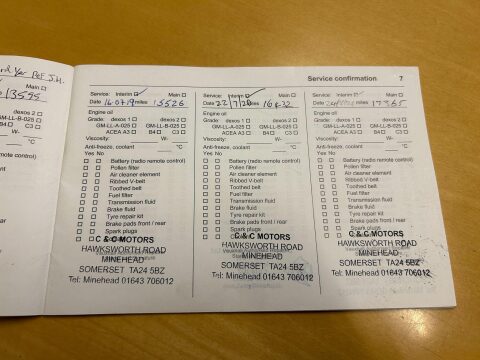 Service confirmation 7
Main ☐
13595
dexos 2 ☐
GM-LL-B-025 ☐
C3 ☐
W-
°C
Service: Interim ☑ Main ☐
Date 16.07.19 miles 15526
Engine oil
Grade: dexos 1 ☐ dexos 2 ☐
GM-LL-A-025 ☐ GM-LL-B-025 ☐
ACEA A3 ☐ B4 ☐ C3 ☐
Viscosity: W-
Anti-freeze, coolant °C
Yes No
☐ ☐ Battery (radio remote control)
☐ ☐ Pollen filter
☐ ☐ Air cleaner element
☐ ☐ Ribbed V-belt
☐ ☐ Toothed belt
☐ ☐ Fuel filter
☐ ☐ Transmission fluid
☐ ☐ Brake fluid
☐ ☐ Tyre repair kit
☐ ☐ Brake pads front / rear
☐ ☐ Spark plugs
C & C MOTORS
HAWKSWORTH ROAD
MINEHEAD
SOMERSET TA24 5BZ
Tel: Minehead 01643 706012
Service: Interim ☑ Main ☐
Date 22/7/20 miles
Engine oil
Grade: dexos 1 ☐ dexos 2 ☐
GM-LL-A-025 ☐ GM-LL-B-025 ☐
ACEA A3 ☐ B4 ☐ C3 ☐
Viscosity: W-
Anti-freeze, coolant °C
Yes No
☐ ☐ Battery (radio remote control)
☐ ☐ Pollen filter
☐ ☐ Air cleaner element
☐ ☐ Ribbed V-belt
☐ ☐ Toothed belt
☐ ☐ Fuel filter
☐ ☐ Transmission fluid
☐ ☐ Brake fluid
☐ ☐ Tyre repair kit
☐ ☐ Brake pads front / rear
☐ ☐ Spark plugs
C & C MOTORS
HAWKSWORTH ROAD
MINEHEAD
SOMERSET TA24 5BZ
Tel: Minehead 01643 706012
Service: Interim ☐ Main ☐
Date miles 17365
Engine oil
Grade: dexos 1 ☐ dexos 2 ☐
GM-LL-A-025 ☐ GM-LL-B-025 ☐
ACEA A3 ☐ B4 ☐ C3 ☐
Viscosity: W-
Anti-freeze, coolant °C
Yes No
☐ ☐ Battery (radio remote control)
☐ ☐ Pollen filter
☐ ☐ Air cleaner element
☐ ☐ Ribbed V-belt
☐ ☐ Toothed belt
☐ ☐ Fuel filter
☐ ☐ Transmission fluid
☐ ☐ Brake fluid
☐ ☐ Tyre repair kit
☐ ☐ Brake pads front / rear
☐ ☐ Spark plugs
C & C MOTORS
HAWKSWORTH ROAD
MINEHEAD
SOMERSET TA24 5BZ
Tel: Minehead 01643 706012